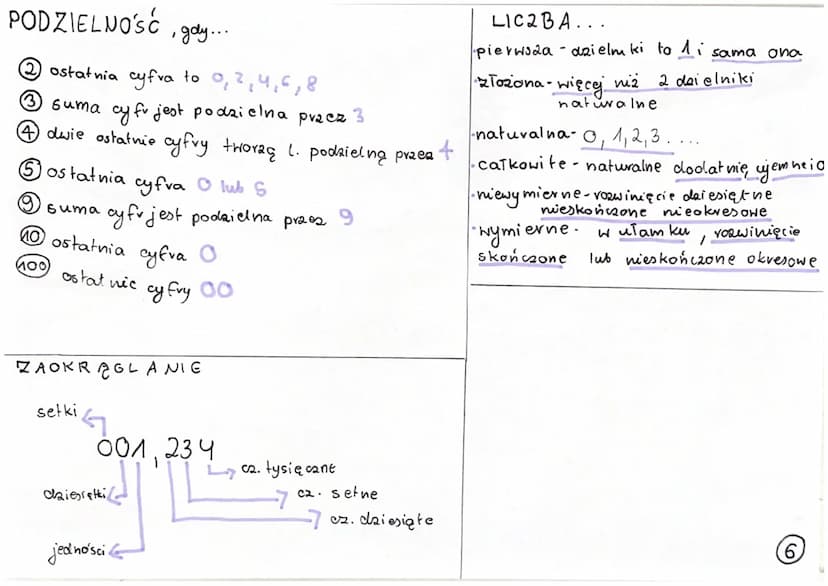 PODZIELNOŚĆ, gdy...
② ostatnia cyfra to 0, 2, 4, 6, 8
③ suma cyfr jest podzielna przez 3
④ dwie ostatnie cyfry tworzą l. podzielną przez 4
⑤ ostatnia cyfra 0 lub 5
⑨ suma cyfr jest podzielna przez 9
⑩ ostatnia cyfra 0
(100) ostatnie cyfry 00
LICZBA...
·pierwsza - dzielniki to 1 i sama ona
·złożona - więcej niż 2 dzielniki
naturalne
·naturalna - 0, 1, 2, 3....
·całkowite - naturalne dodatnie, ujemne i 0
·niewymierne - rozwinięcie dziesiętne
nieskończone nieokresowe
·wymierne - w ułamku, rozwinięcie
skończone lub nieskończone okresowe
ZAOKRĄGLANIE
setki
001,234
cz. tysięczne
dziesiątki
cz. setne
cz. dziesiąte
jedności
⑥